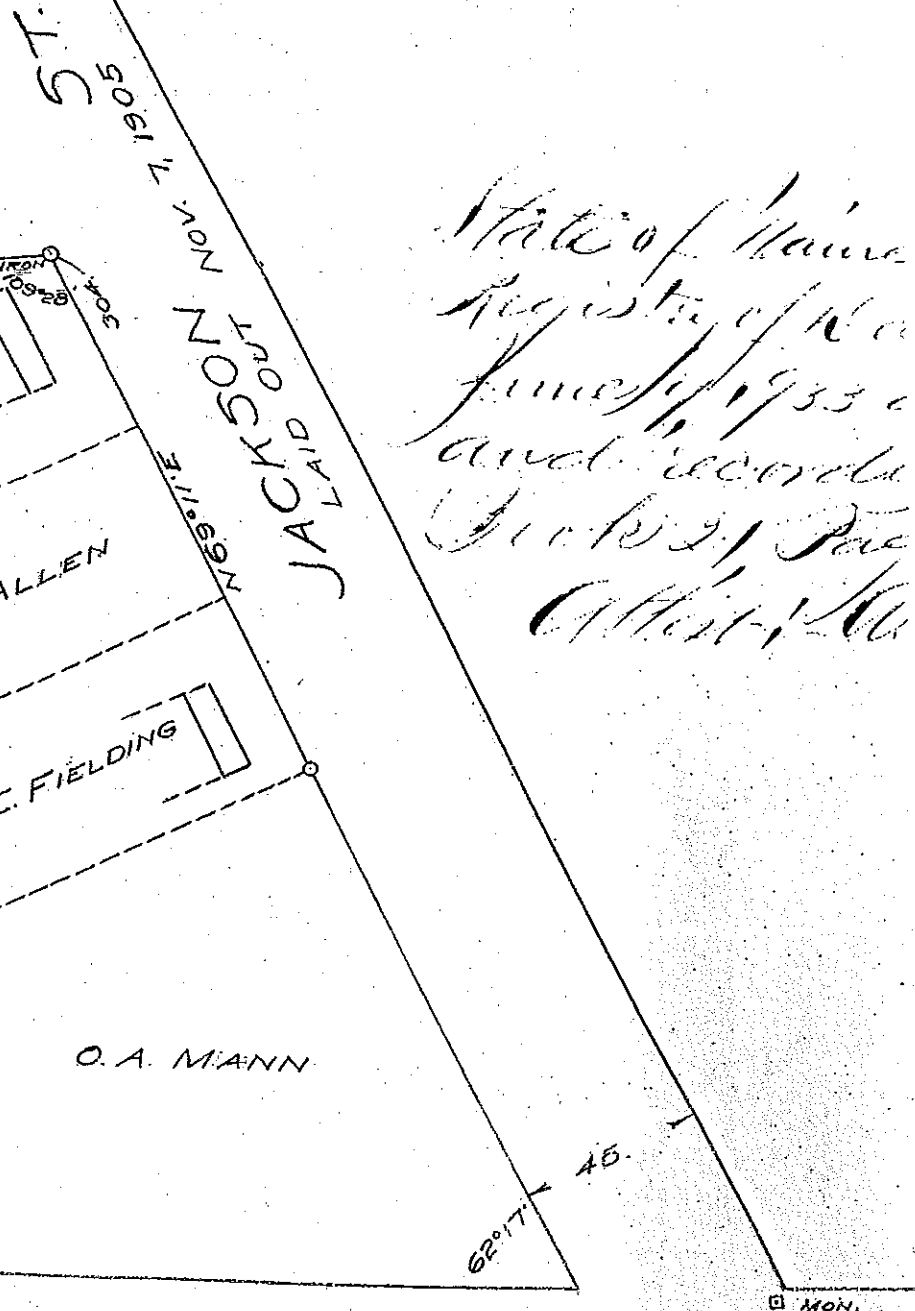 ST.
JACKSON
LAID OUT NOV. 7, 1905
IRON
109°28'
304.
N69°11'E
ALLEN
FIELDING
O. A. MANN
45.
62°17'
MON.
State of Maine
Registry of
June 1933
and recorde
Book 21 Pag
Attest: